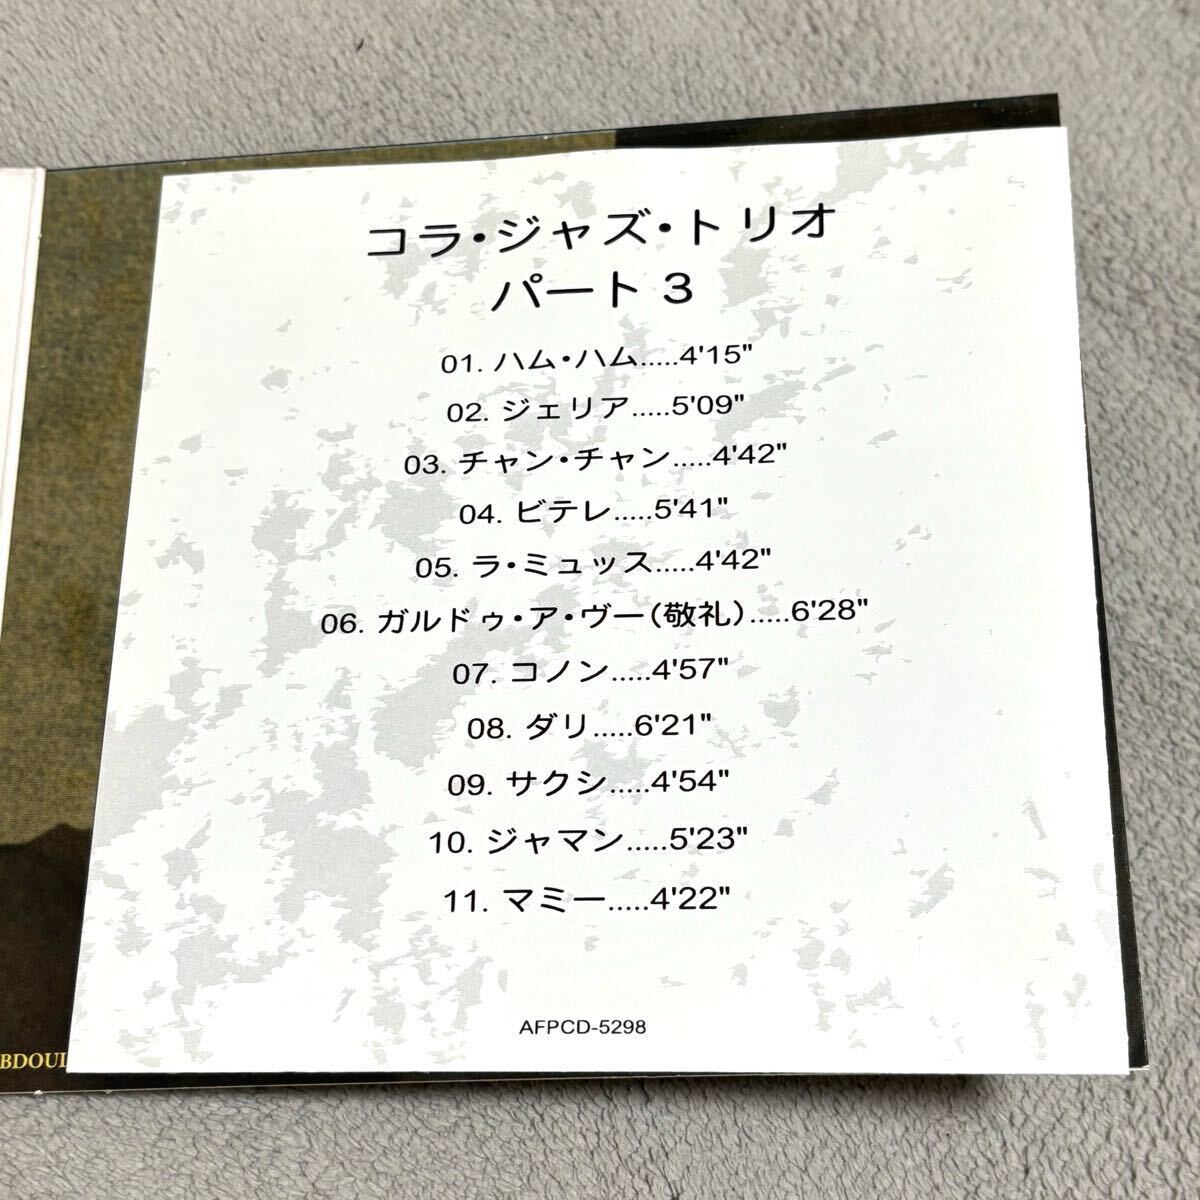 コラ・ジャズ・トリオ
パート 3
01. ハム・ハム.....4'15"
02. ジェリア.....5'09"
03. チャン・チャン.....4'42"
04. ビテレ.....5'41"
05. ラ・ミュッス.....4'42"
06. ガルドゥ・ア・ヴー(敬礼).....6'28"
07. コノン.....4'57"
08. ダリ.....6'21"
09. サクシ.....4'54"
10. ジャマン.....5'23"
11. マミー.....4'22"
AFPCD-5298